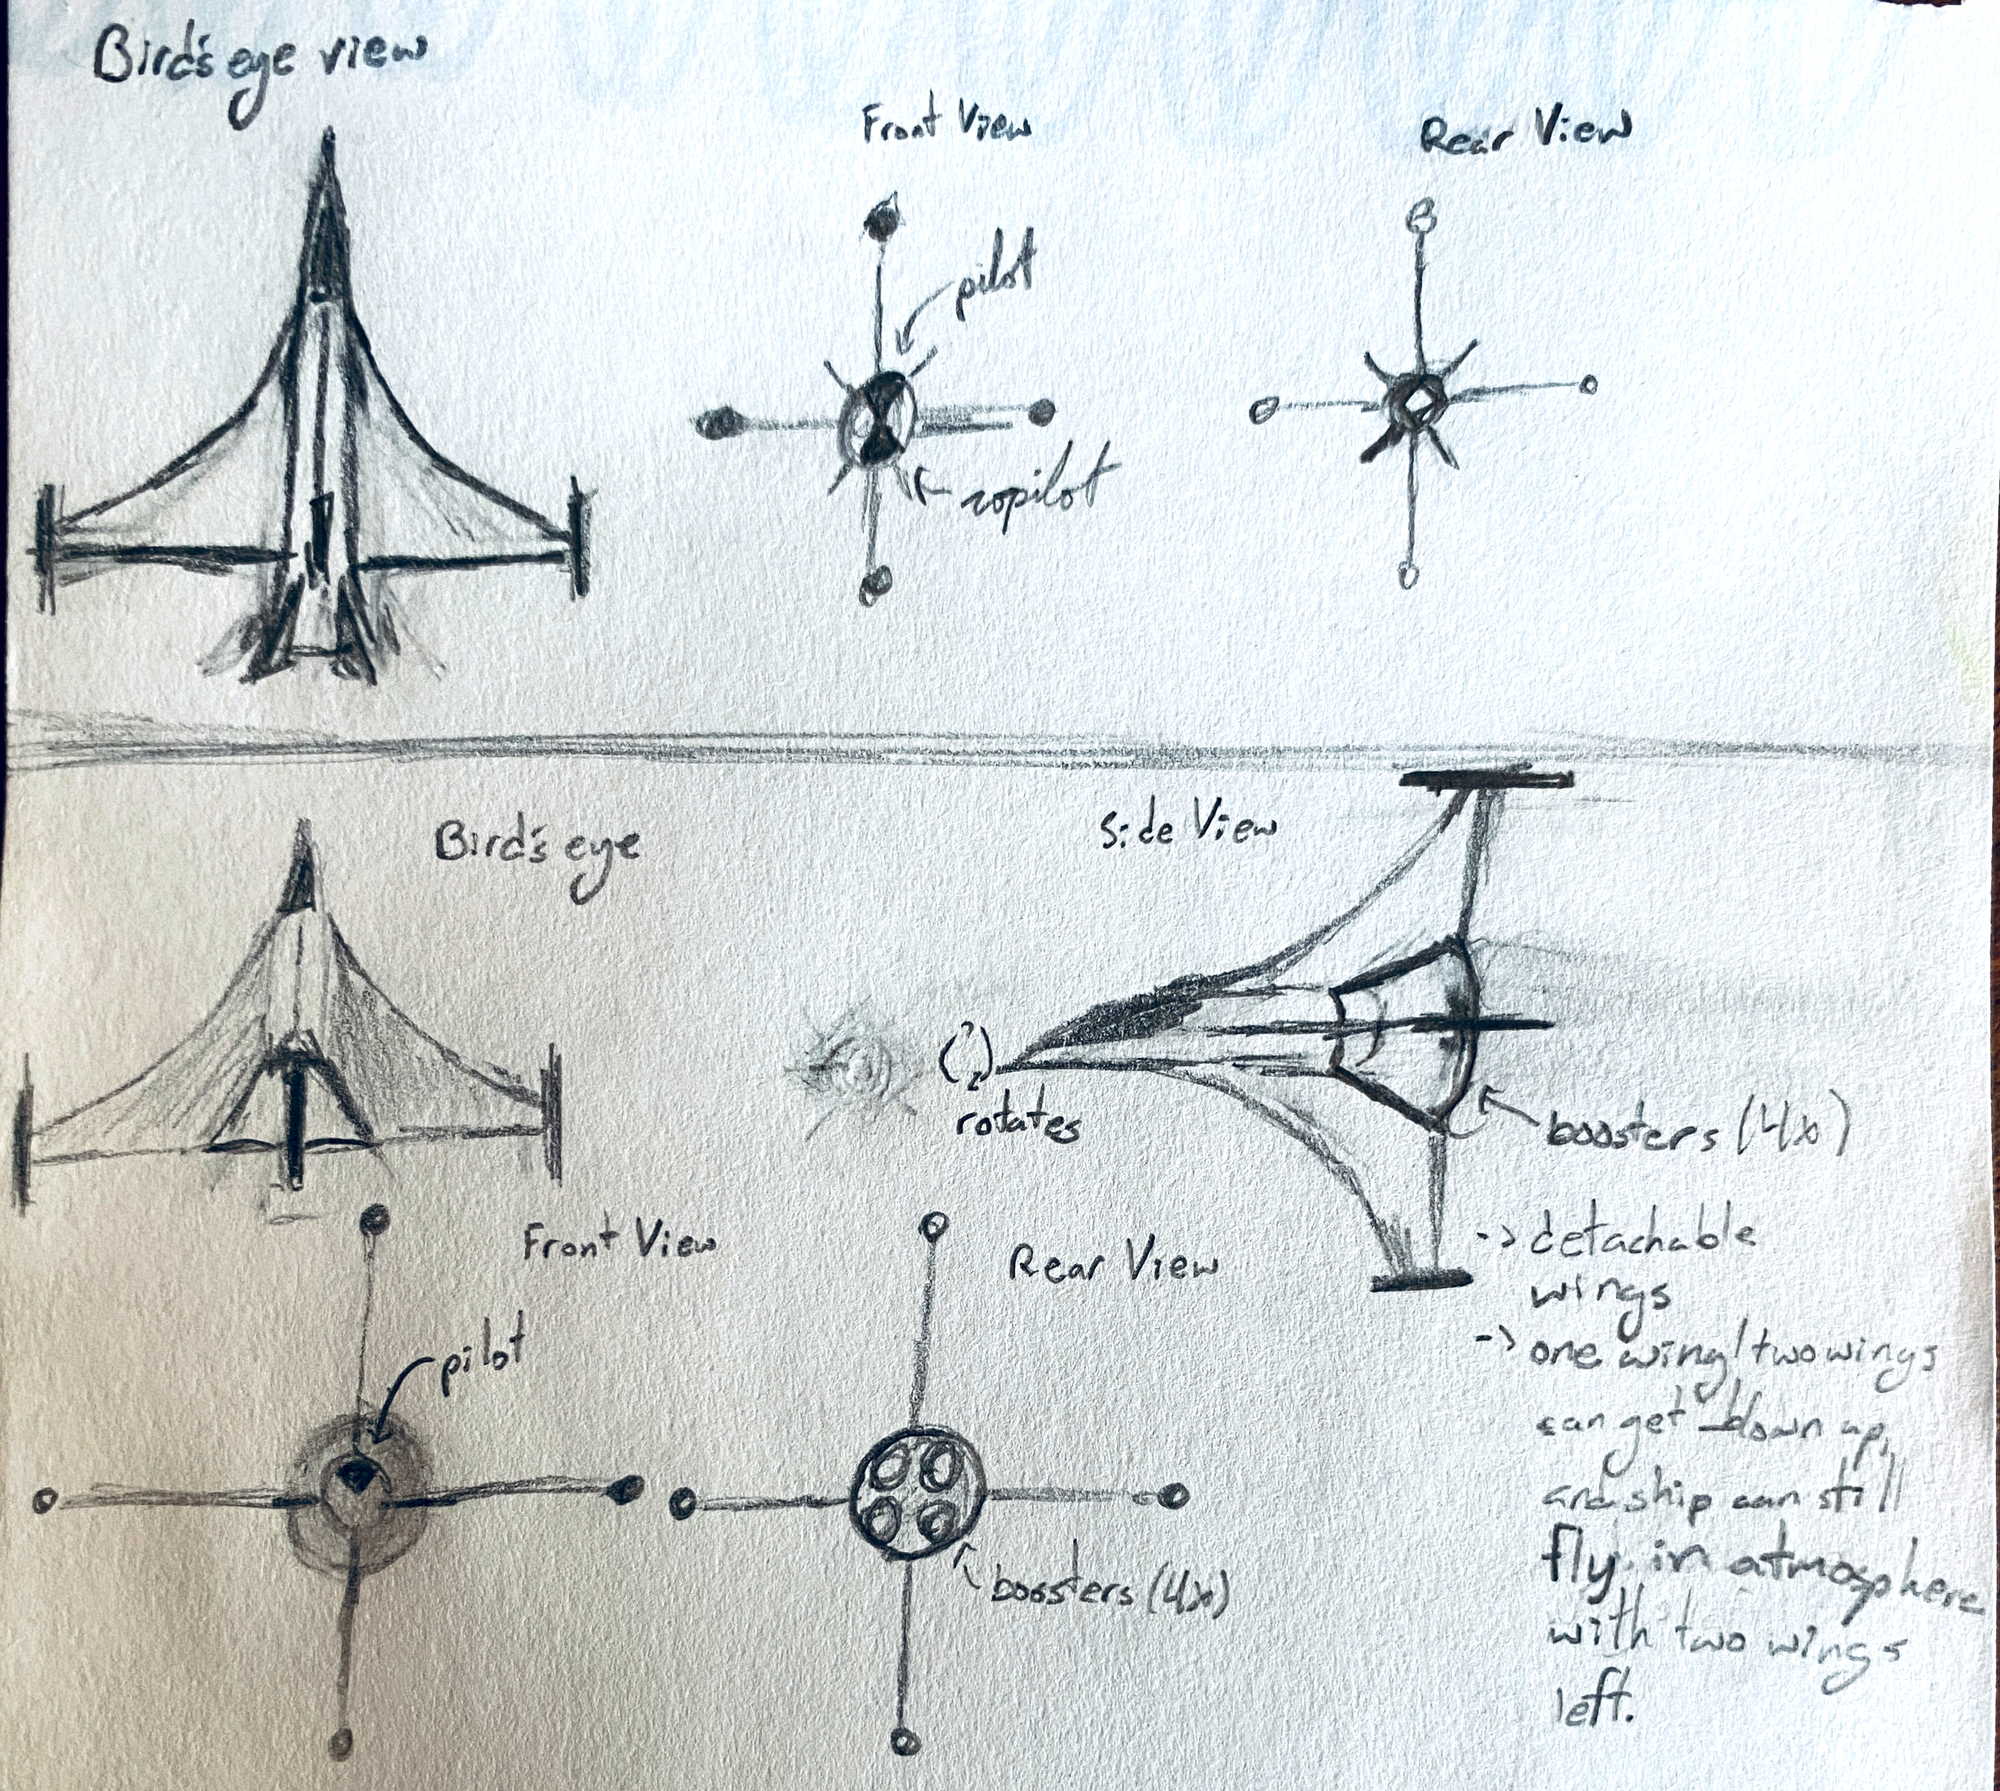 Bird's eye view
Front View
Rear View
pilot
copilot
Bird's eye
Side View
rotates
boosters (4x)
-> detachable
wings
Front View
Rear View
-> one wing/two wings
pilot
can get blown up,
and ship can still
fly in atmosphere
boosters (4x)
with two wings
left.